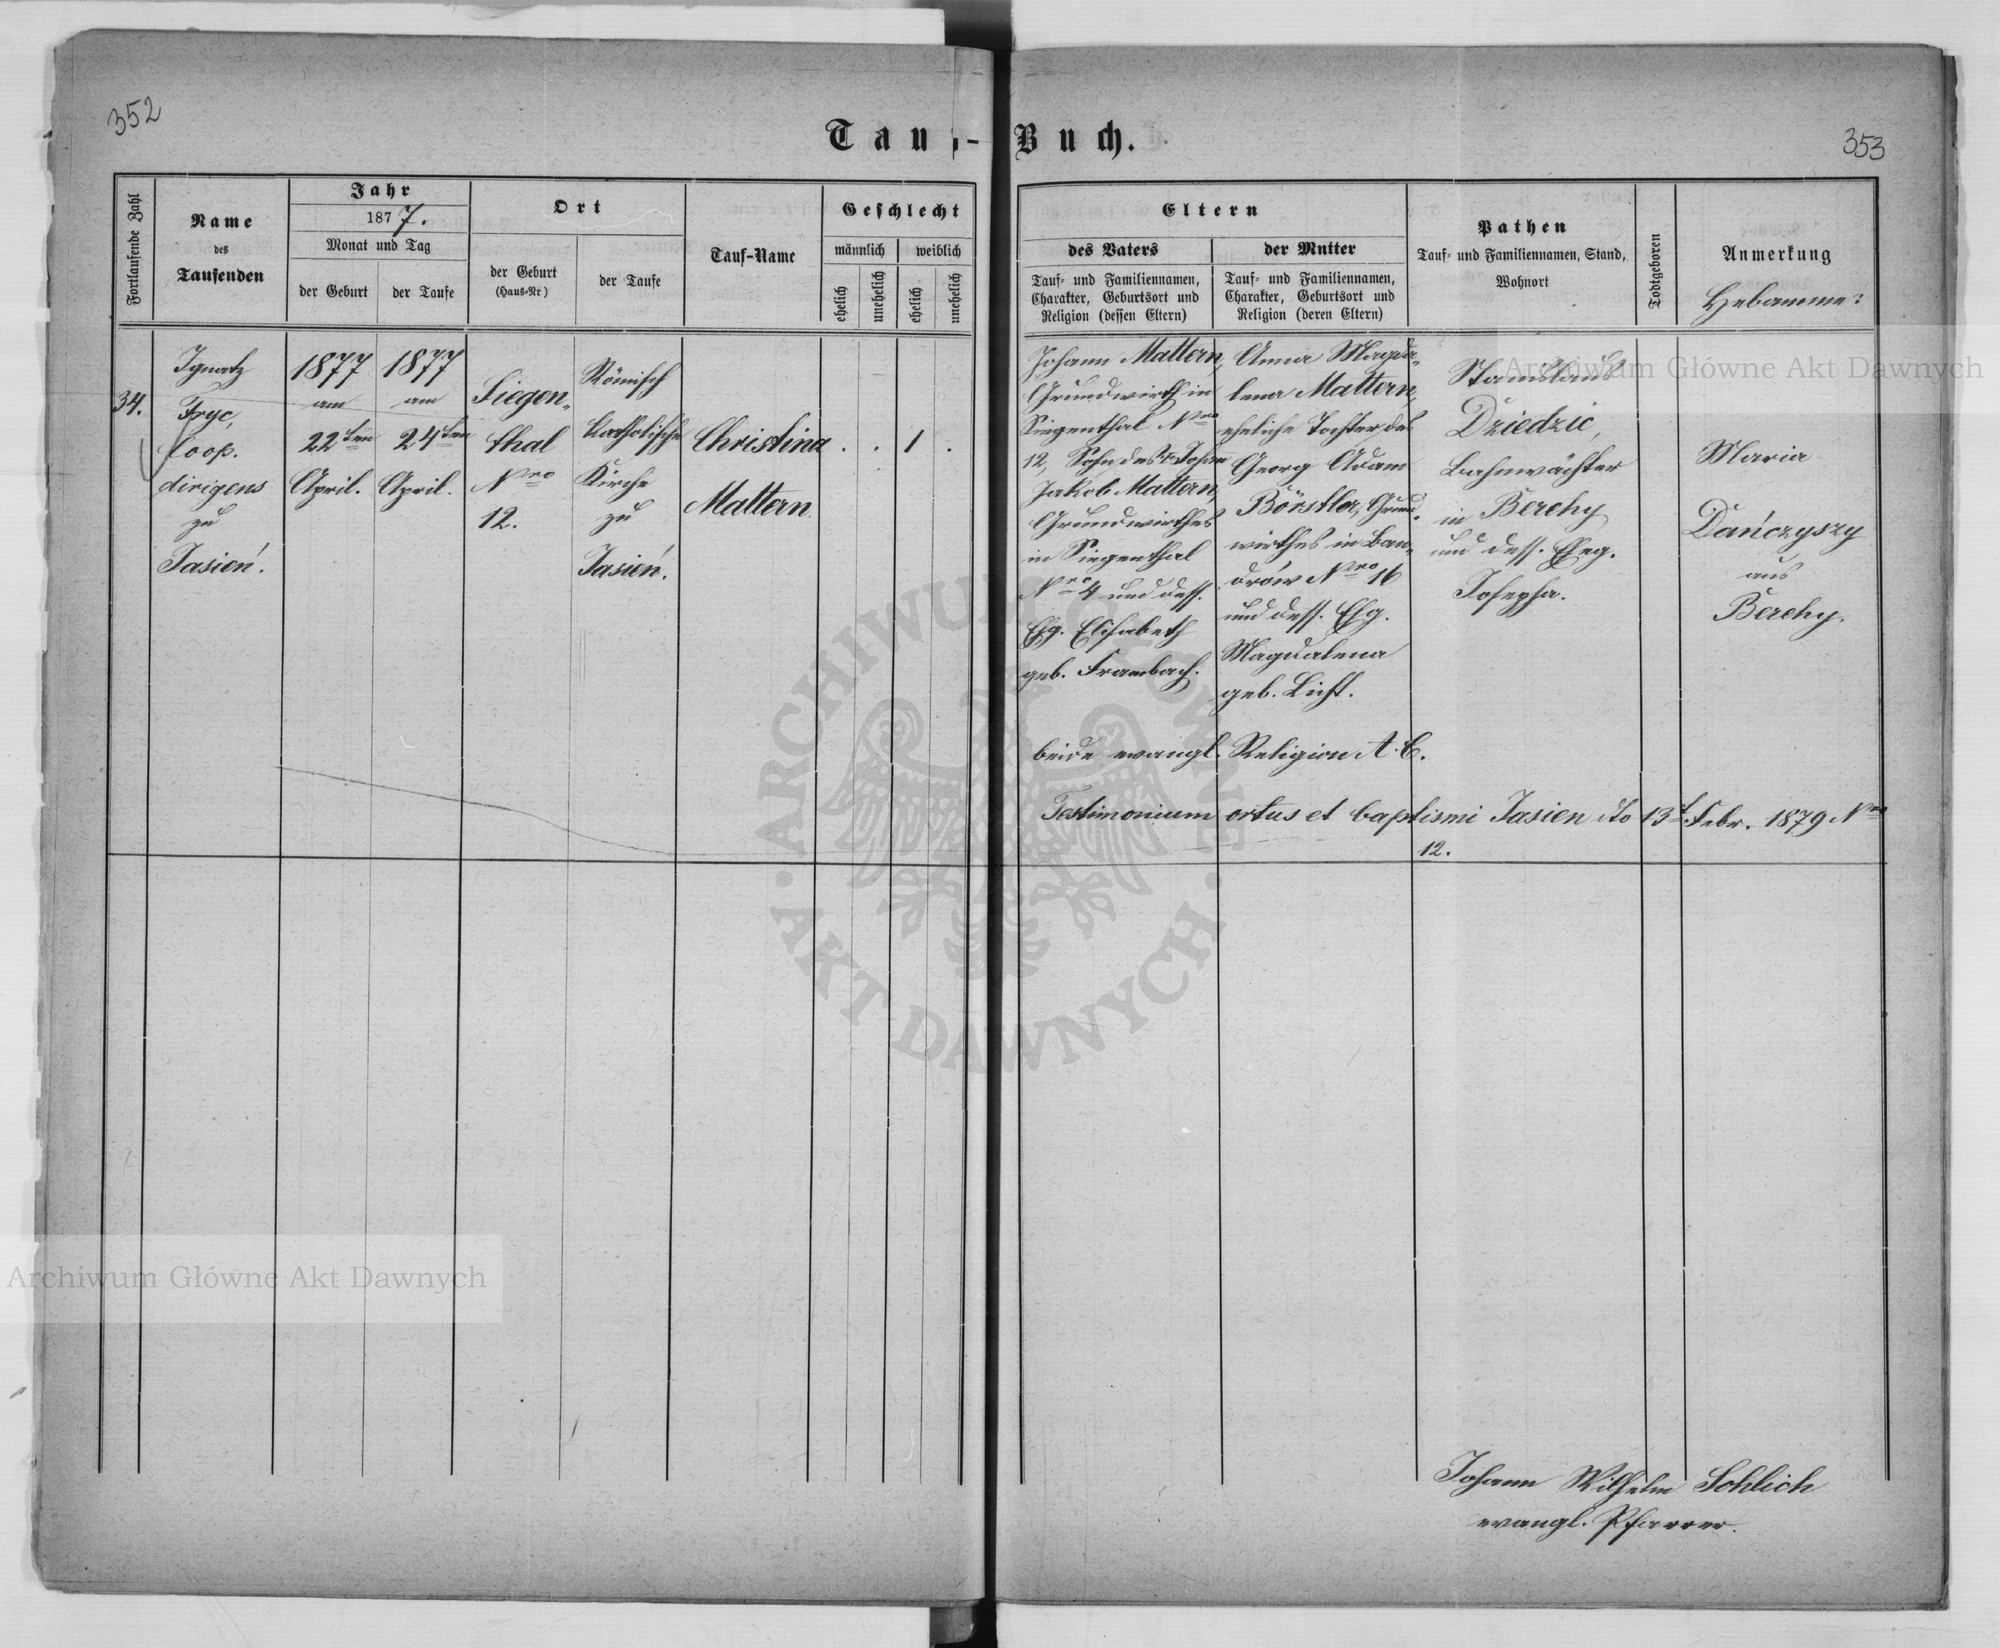 352
Tauf-Buch.
353
Fortlaufende Zahl
Name
des
Taufenden
Jahr
1877.
Monat und Tag
der Geburt
der Taufe
Ort
der Geburt
(Haus-Nr)
der Taufe
Tauf-Name
Geschlecht
männlich
weiblich
ehelich
unehelich
ehelich
unehelich
Eltern
des Vaters
Tauf- und Familiennamen,
Charakter, Geburtsort und
Religion (dessen Eltern)
der Mutter
Tauf- und Familiennamen,
Charakter, Geburtsort und
Religion (deren Eltern)
Pathen
Tauf- und Familiennamen, Stand,
Wohnort
Todtgeboren
Anmerkung
Hebamme:
34.
Ignatz
Fryc,
Coop.
dirigens
zu
Jasień.
1877
am
22ten
April.
1877
am
24ten
April.
Siegen-
thal
Nro
12.
Römisch
katholische
Kirche
zu
Jasień.
Christina
Mattern.
. . 1 .
Johann Mattern,
Grundwirth in
Siegenthal Nro
12, Sohn des Johan
Jakob Mattern,
Grundwirthes
in Siegenthal
Nro 4 und dess.
Ehg. Elisabeth
geb. Frambach.
Anna Magda-
lena Mattern,
eheliche Tochter des
Georg Adam
Börstler, Grund-
wirthes in Ban-
drów Nro 16
und dess. Ehg.
Magdalena
geb. Licht.
beide evangl. Religion A. C.
Stanislaus
Dziedzic,
Bahnwächter
in Berehy
und dess. Eheg.
Josepha.
Maria
Dańczyszy
aus
Berehy.
Testimonium ortus et baptismi Jasien dto 13t Febr. 1879 Nro
12.
Johann Wilhelm Schlich
evangl. Pfarrer.
Archiwum Główne Akt Dawnych
Archiwum Główne Akt Dawnych
ARCHIWUM GŁÓWNE
AKT DAWNYCH